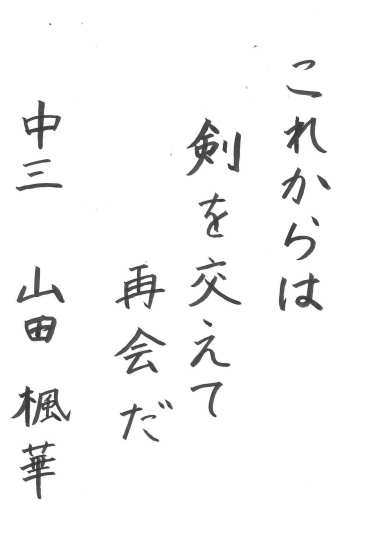 これからは
剣を交えて
再会だ
中三　山田　楓華